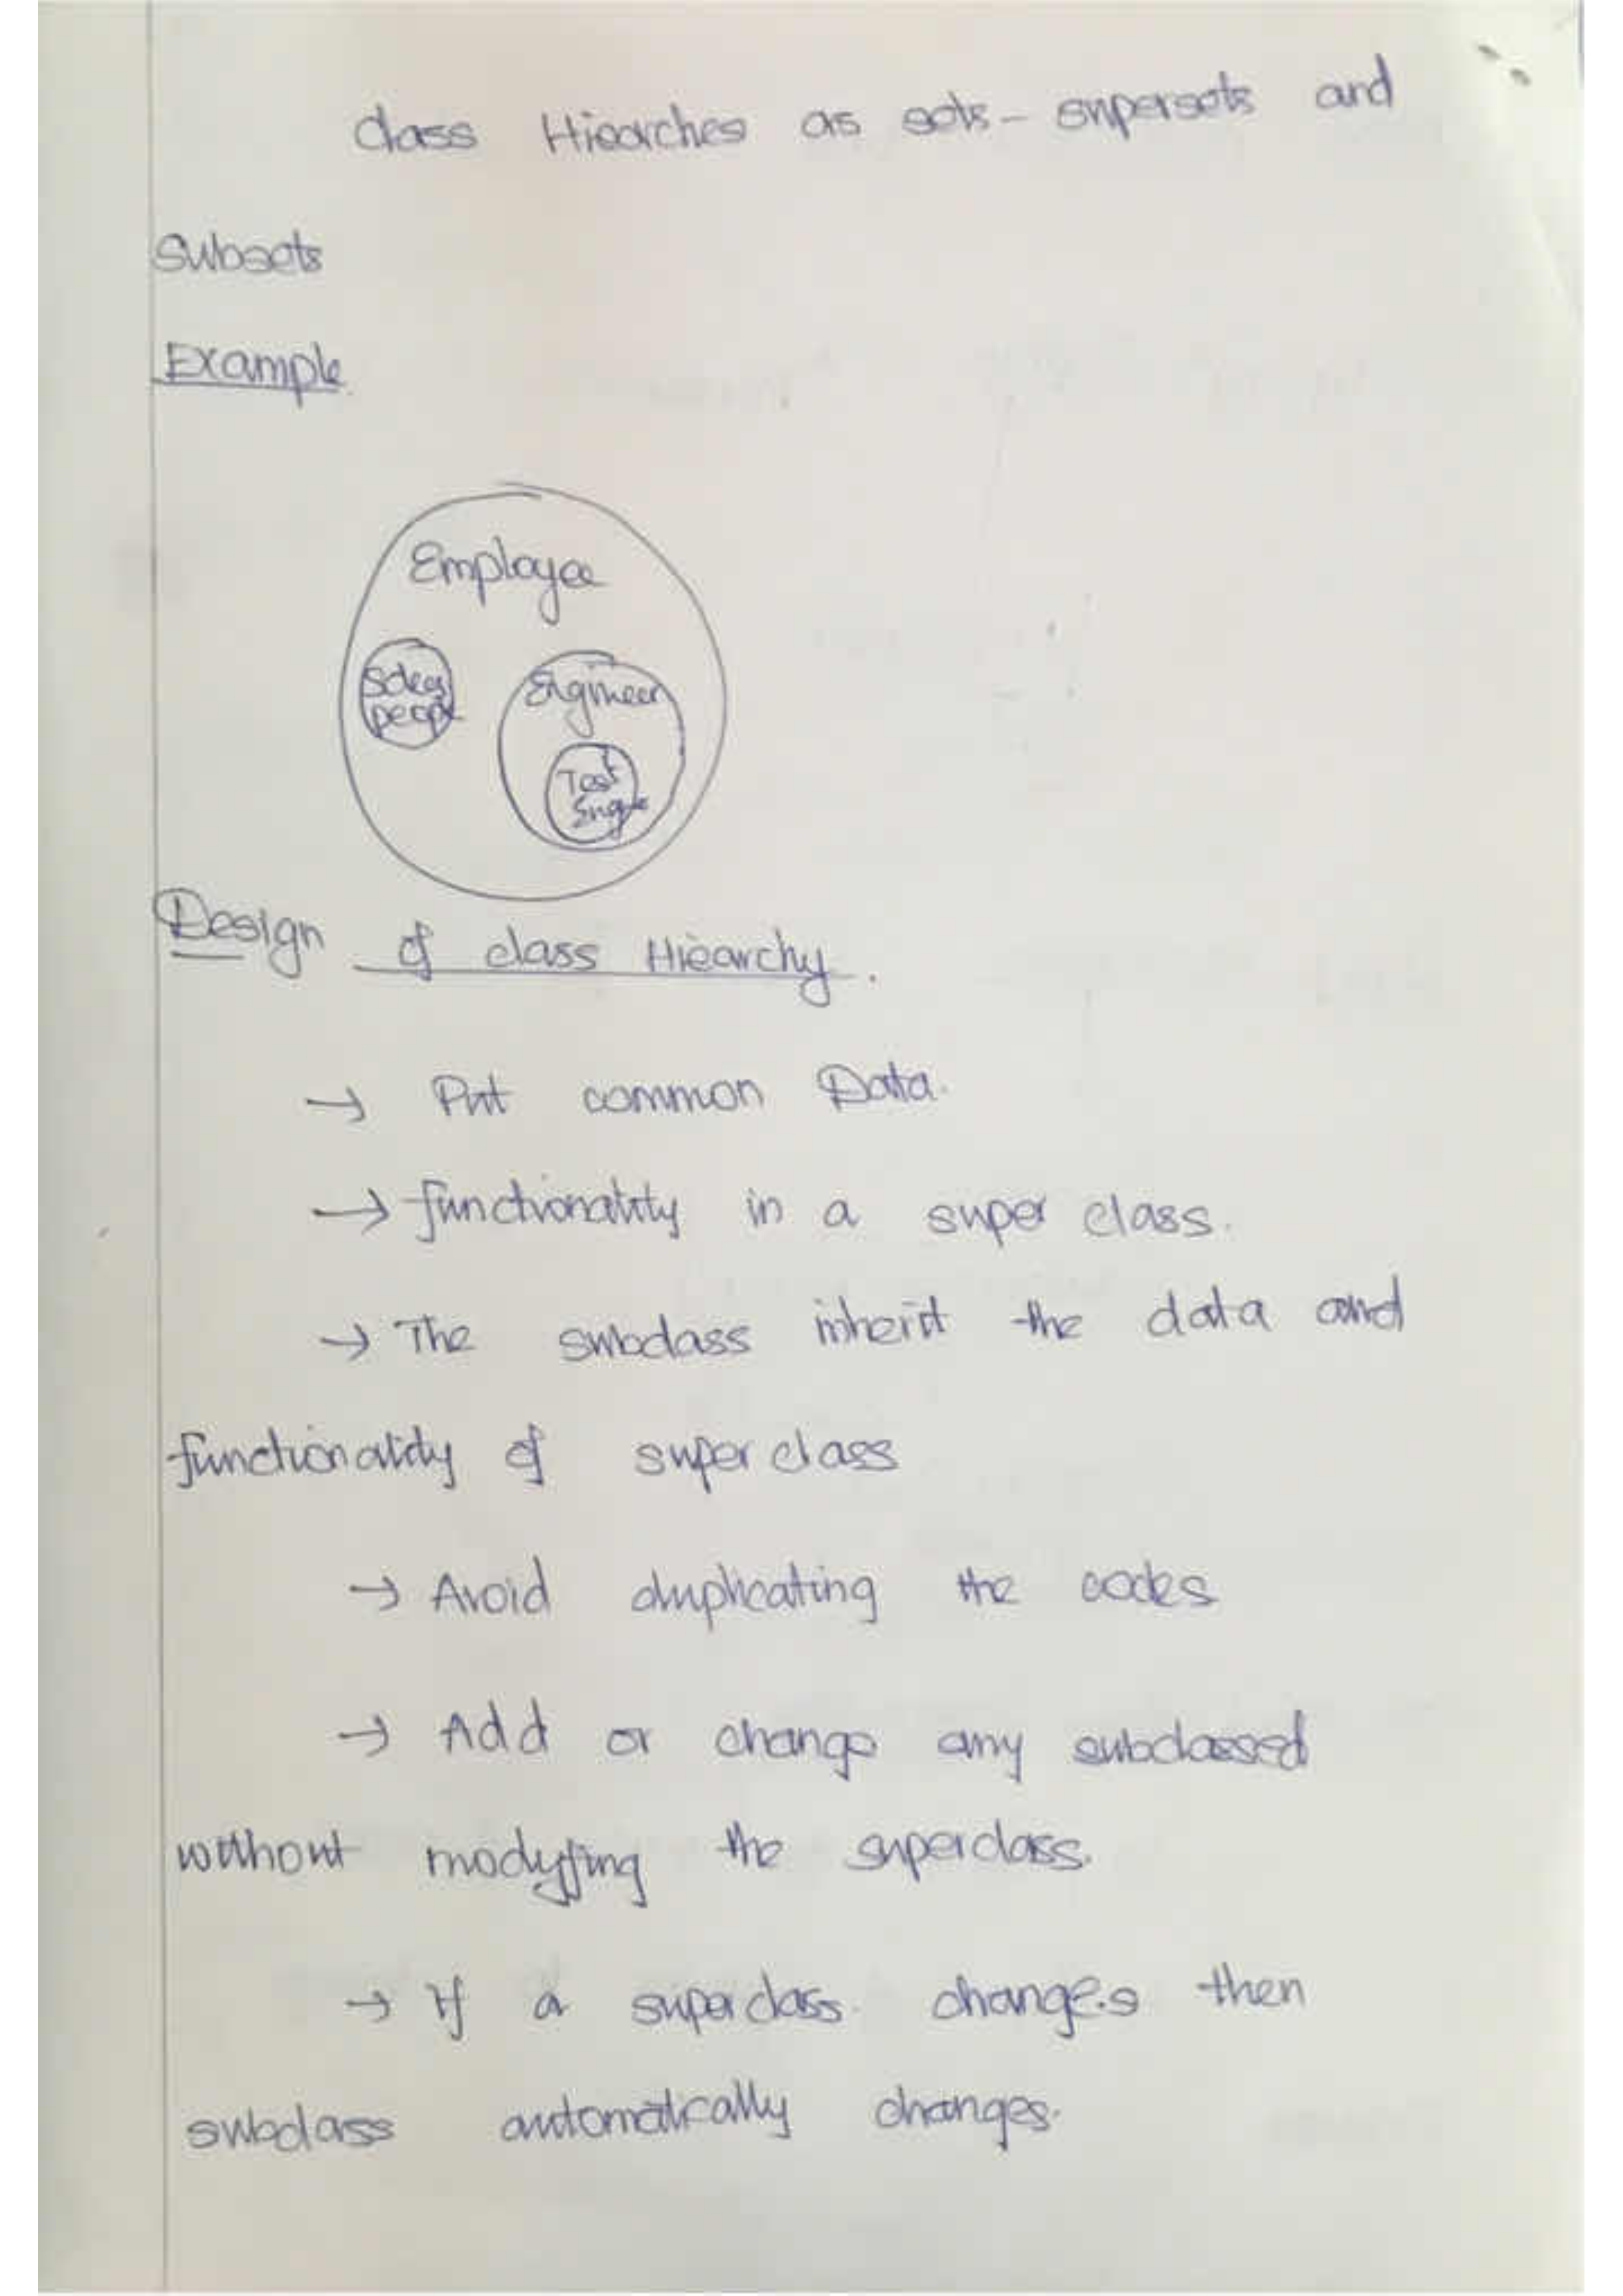 class Hiearches as sets - supersets and
Subsets
Example.
Employee
Sales
peopl
Engineer
Test
Engne
Design of class Hiearchy.
→ Put common Data.
→ functionality in a super class.
→ The subclass inherit the data and
functionality of superclass
→ Avoid duplicating the codes
→ Add or change any subclassed
without modyfing the superclass.
→ If a superclass. changes then
subclass automatically changes.